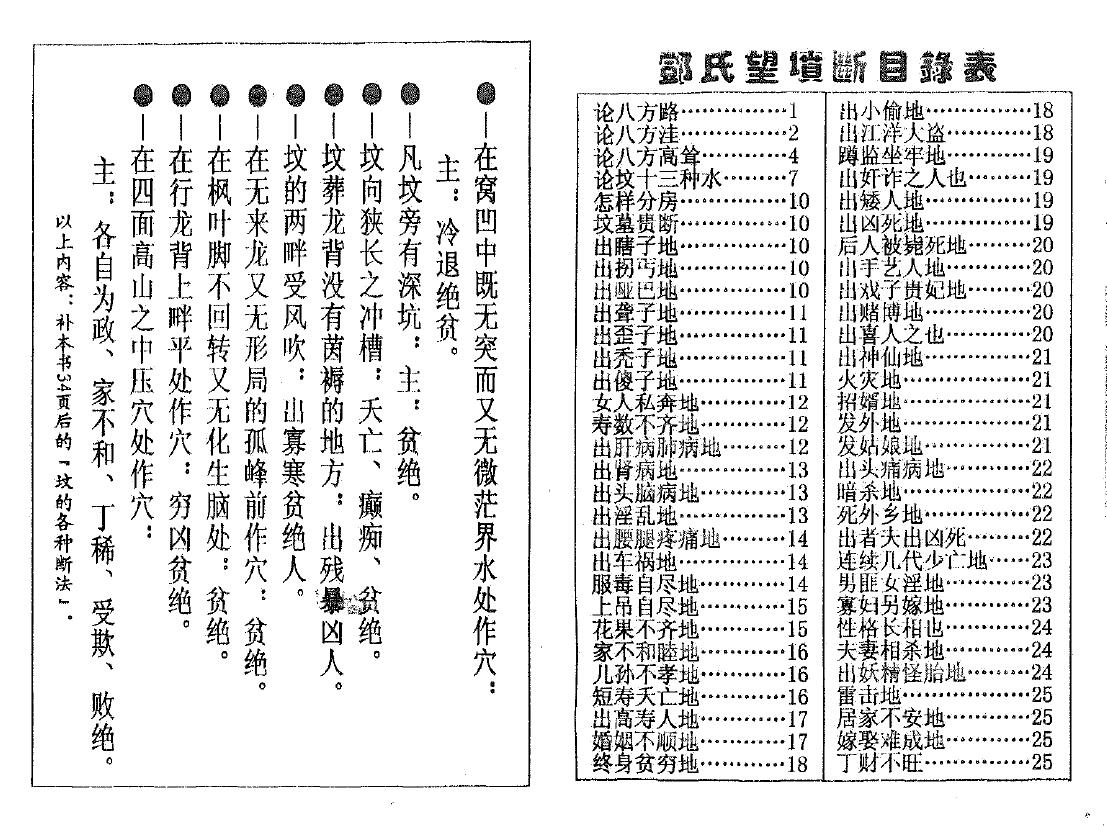 ●—在窝凹中既无突而又无微茫界水处作穴：
主：冷退绝贫。
●—凡坟旁有深坑：主：贫绝。
●—坟向狭长之冲槽：夭亡、癫痴、贫绝。
●—坟葬龙背没有茵褥的地方：出残暴凶人。
●—坟的两畔受风吹：出寡寒贫绝人。
●—在无来龙又无形局的孤峰前作穴：贫绝。
●—在枫叶脚不回转又无化生脑处：贫绝。
●—在行龙背上畔平处作穴：穷凶贫绝。
●—在四面高山之中压穴处作穴：
主：各自为政、家不和、丁稀、受欺、败绝。
以上内容：补本书34页后的「坟的各种断法」.
鄧氏望墳斷目錄表
论八方路……………1
论八方洼……………2
论八方高耸…………4
论坟十三种水………7
怎样分房……………10
坟墓贵断……………10
出瞎子地……………10
出拐丐地……………10
出哑巴地……………10
出聋子地……………11
出歪子地……………11
出秃子地……………11
出傻子地……………11
女人私奔地…………12
寿数不齐地…………12
出肝病肺病地………12
出肾病地……………13
出头脑病地…………13
出淫乱地……………13
出腰腿疼痛地………14
出车祸地……………14
服毒自尽地…………14
上吊自尽地…………15
花果不齐地…………15
家不和睦地…………16
儿孙不孝地…………16
短寿夭亡地…………16
出高寿人地…………17
婚姻不顺地…………17
终身贫穷地…………18
出小偷地……………18
出江洋大盗…………18
蹲监坐牢地…………19
出奸诈之人也………19
出矮人地……………19
出凶死地……………19
后人被毙死地………20
出手艺人地…………20
出戏子贵妃地………20
出赌博地……………20
出喜人之也…………20
出神仙地……………21
火灾地………………21
招婿地………………21
发外地………………21
发姑娘地……………21
出头痛病地…………22
暗杀地………………22
死外乡地……………22
出者大出凶死………22
连续几代少亡地……23
男匪女淫地…………23
寡妇另嫁地…………23
性格长相也…………24
夫妻相杀地…………24
出妖精怪胎地………24
雷击地………………25
居家不安地…………25
嫁娶难成地…………25
丁财不旺……………25